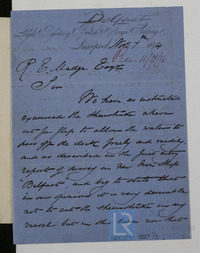 Belfast
Lloyd's Register of British & Foreign Shipping
Liverpool, Nov 7 1874
R. E. Madge Esqre
Sir
We have as instructed
examined the sheerstrake where
cut for flap to allow the water to
pass off the deck freely and readily
and as described in the first entry
report of survey on new Iron Ship
"Belfast" and beg to state that
in our opinion it is very desirable
not to cut the sheerstrake in any
vessel but in the case now that
LR